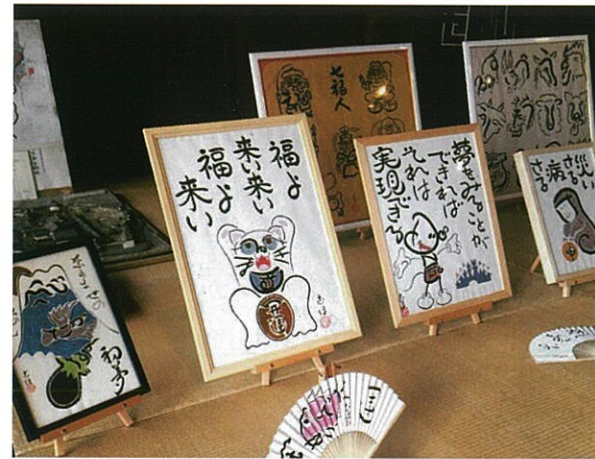 七福人
福よ
来い来い
福よ
来い
夢をみることが
できれば
それは
実現できる
災い
さる
病
さる
初夢